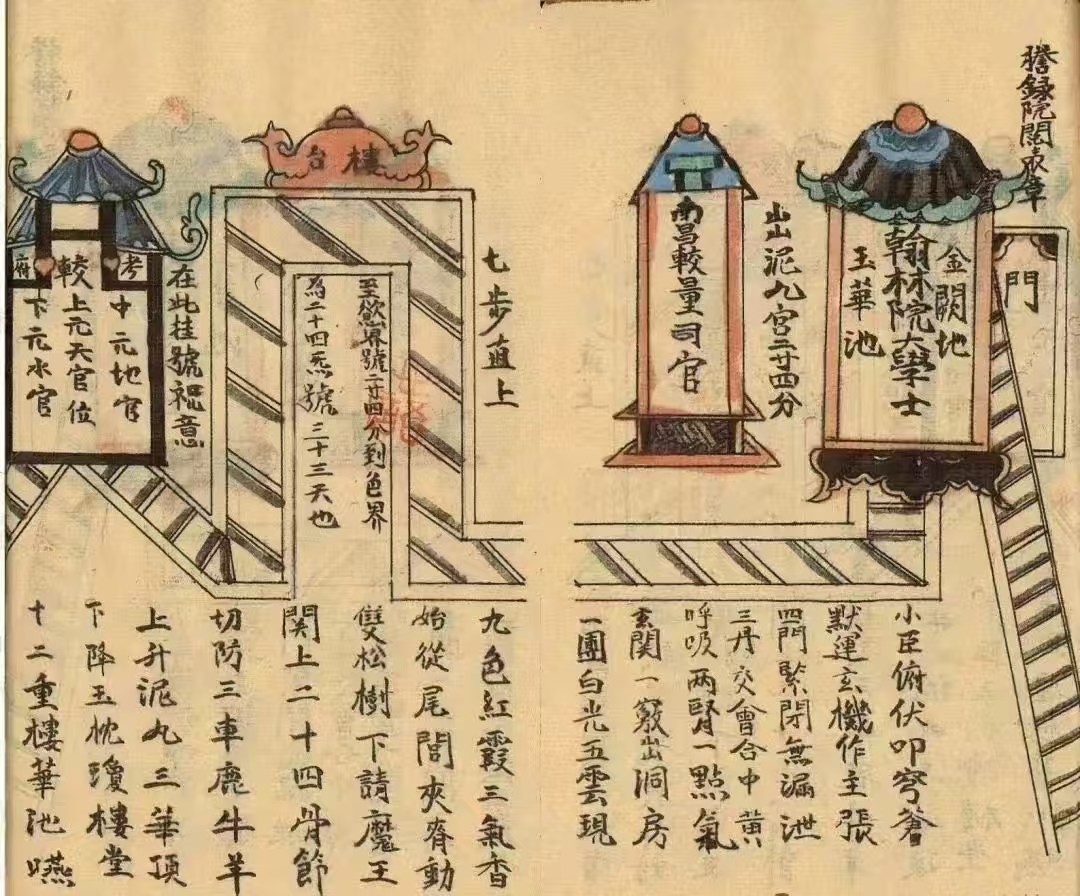 謄錄院關表章
門
金闕地
翰林院大學士
玉華池
出泥九宮二廿四分
南昌較量司官
七步直上
樓台
至慾界號二廿四分到色界
為二十四炁號三十三天也
在此挂號褆意
考較府
中元地官
上元天官位
下元水官
小臣俯伏叩穹蒼
默運玄機作主張
四門緊閉無漏泄
三丹交會合中黃
呼吸兩腎一點氣
玄關一竅出洞房
一團白光五雲現
九色紅霞三氣香
始從尾閭夾脊動
雙松樹下請魔王
関上二十四骨節
切防三車鹿牛羊
上升泥丸三華頂
下降玉枕瓊樓堂
十二重樓華池嚥